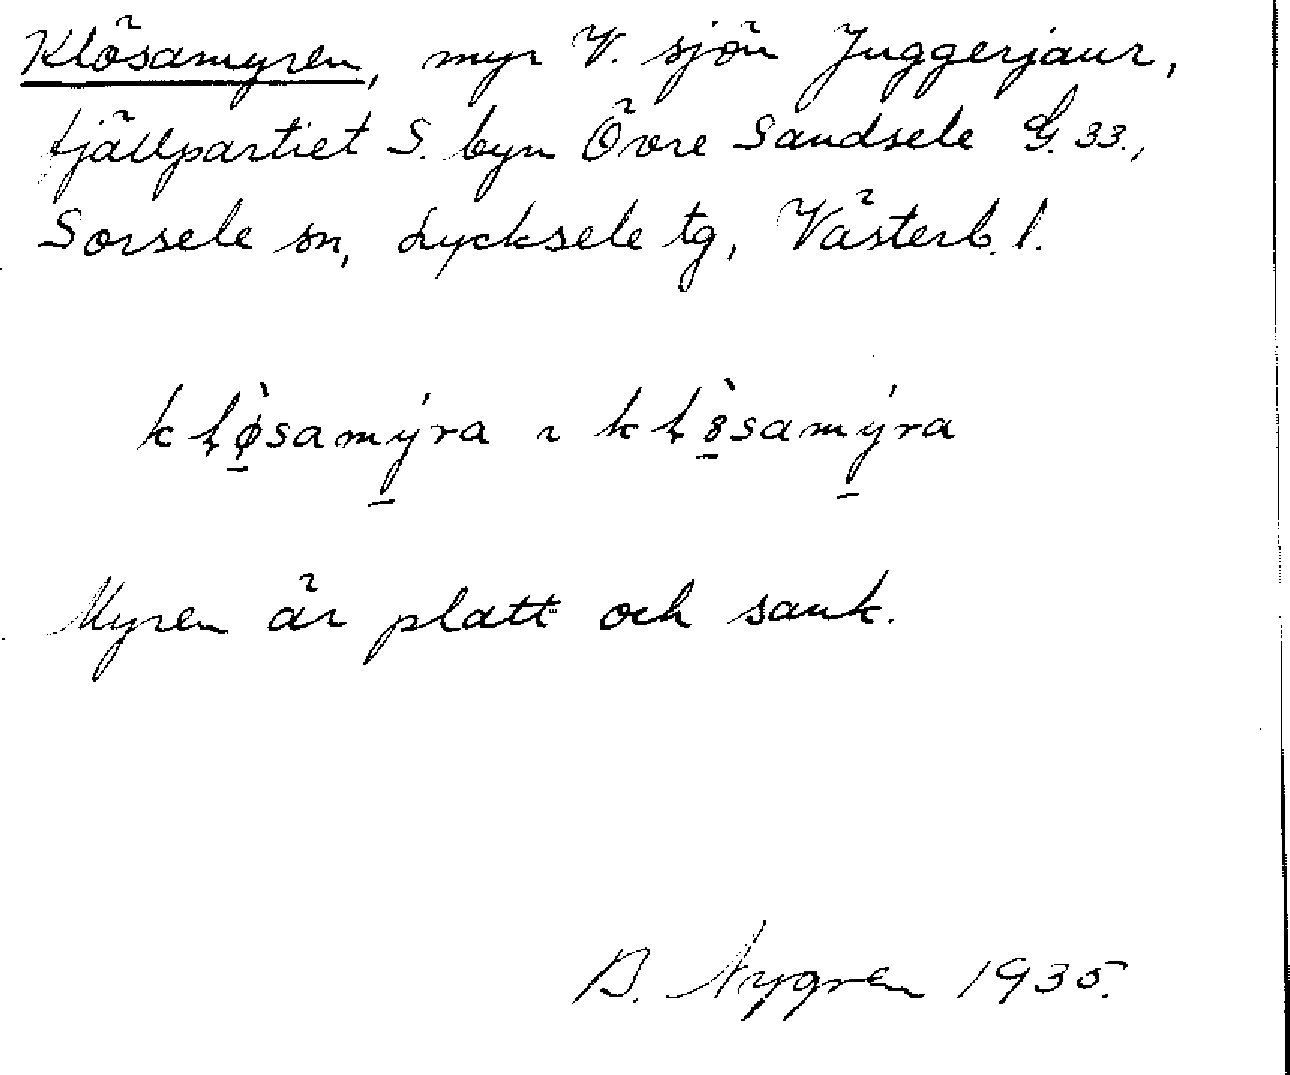 Klösamyren, myr V. sjön Juggerjaur,
fjällpartiet S. byn Övre Sandsele G. 33.,
Sorsele sn, Lycksele tg, Västerb. l.
kłø̀samýra ~ kł8̀samýra
Myren är platt och sank.
B. Nygren 1935.